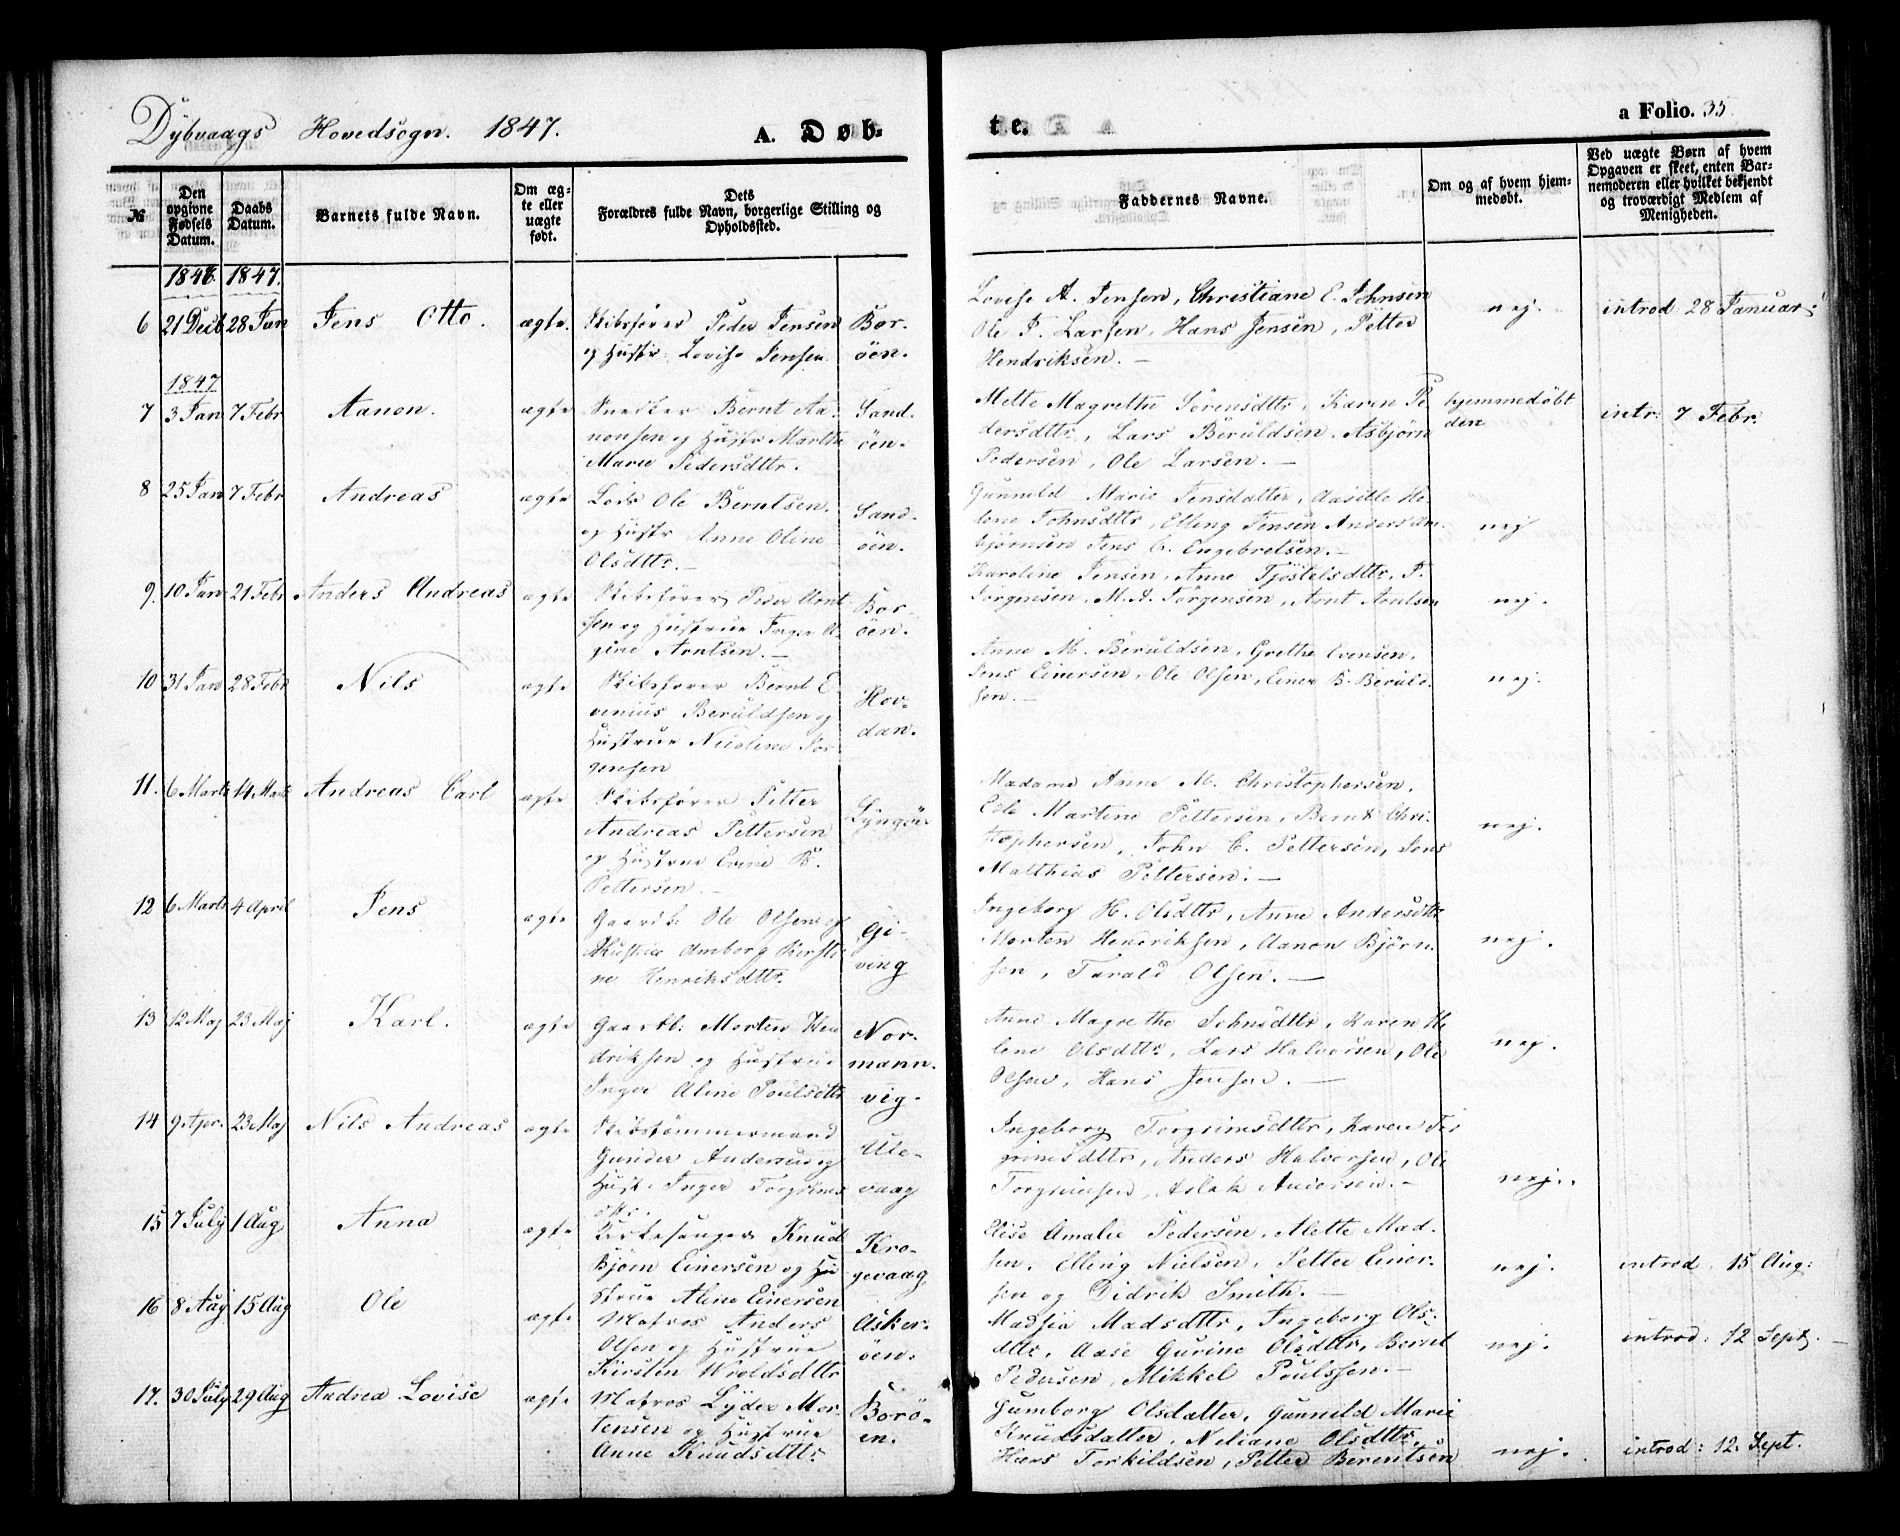 Dybvaags Hovedsogn. 1847. A. Døb-
te. a Folio. 35
№ Den opgivne Fødsels Datum. Daabs Datum. Barnets fulde Navn. Om ægte eller uægte født. Dets Forældres fulde Navn, borgerlige Stilling og Opholdssted. Faddernes Navne. Om og af hvem hjemmedøbt. Ved uægte Børn af hvem Opgaven er skeet, enten Barnemoderen eller hvilket bekjendt og troværdigt Medlem af Menigheden.
1846 1847.
6 21 Decb 28 Jan Jens Otto. ægte. Skibsfører Peder Jensen Bor-
og Hustr: Lovise Jensen. öen.
Lovise A. Jensen, Christiane E. Johnsen
Ole J. Larsen, Hans Jensen, Petter
Hendriksen. —
nej. introd 28 Januar:
1847
7 3 Jan 7 Febr Aanon. ægte Snedker Bernt Aa- Sand-
nonsen og Hustr Marthe öen.
Marie Pedersdttr.
Mette Magrethe Sörensdttr, Karen Pe
dersdttr, Lars Beruldsen, Asbjörn
Pedersen, Ole Larsen. —
hjemmedöbt
den
intr: 7 Febr.
8 25 Jan 7 Febr Andreas ægte Lods Ole Berntsen. Sand-
og Hustr Anne Oline öen.
Olsdttr. —
Gunnild Marie Jensdatter, Aasille He-
lene Johnsdttr, Elling Jensen Anders An-
bjørnsen Jens C. Engebretsen. —
nej
9. 10 Jan 21 Febr Anders Andreas ægte Skibsfører Peder Arnt Bor-
sen og Hustrue Inger öen.
gine Arntsen. —
Karoline Jensen, Anne Tjöstelsdttr, P.
Jorgensen, M. A. Jörgensen, Arnt Arntsen
nej.
10 31 Jan 28 Febr Nils ægte Skibsfører Bernt E- Hov-
venius Beruldsen og dan.
Hustrue Nicoline Jör-
gensen
Anne M. Beruldsen, Grethe Evensen,
Jens Einersen, Ole Olsen, Einer B. Beruld-
sen. —
nej.
11. 6 Marts 14 Marts Andreas Carl ægte Skibsfører Petter Lyngör
Andreas Pettersen
og Hustrue Evine B.
Pettersen. —
Madame Anne M. Christophersen,
Edle Martine Pettersen, Bernt Chri-
stophersen, John C. Pettersen, Jens
Matthias Pettersen. —
nej.
12 6 Marts 4 April Jens ægte Gaardb: Ole Olsen og Gi-
Hustrue Amborg Kirsti- ving
ne Henriksdttr.
Ingeborg H. Olsdttr, Anne Andersdttr
Morten Hendriksen, Aanon Björn-
sen, Tarald Olsen. —
nej.
13 12 Maj 23 Maj Karl. ægte Gaardb: Morten Hen Nor-
driksen og Hustrue mann-
Inger Aline Poulsdttr vig.
Anne Magrethe Johnsdttr, Karen He
lene Olsdttr, Lars Halvorsen, Ole
Olsen, Hans Jensen. —
nej.
14 9 Apr. 23 Maj Nils Andreas ægte Skibstömmermand Ule-
Gunder Andersen og vaag
Hust. Inger Torgrims
dtr.
Ingeborg Torgrimsdttr, Karen Tor
grimsdttr, Anders Halvorsen, Ole
Torgrimsen, Aslak Andersen. —
nej.
15 7 July 1 Aug Anna ægte Kirkesanger Knud Kro-
Björn Einersen og Hu gevaag
strue Aline Einersen
Elise Amalie Pedersen, Mette Mad-
sen, Elling Nielsen, Petter Einer-
sen og Didrik Smith. —
nej. introd. 15 Aug:
16 8 Aug 15 Aug Ole ægte Matros Anders Asker-
Olsen og Hustrue öen.
Kirsten Wroldsdttr
Madsia Madsdttr, Ingeborg Ols-
dttr, Aase Gurine Olsdttr, Bernt
Pedersen, Mikkel Poulssen. —
nej. introd: 12 Sept.
17. 30 July 29 Aug Andrea Lovise ægte Matros Lÿder Mor- Borö-
tensen og Hustrue en.
Anne Knudsdttr
Gumborg Olsdatter, Gunnild Marie
Knudsdatter, Neliane Olsdttr,
Hans Torkildsen, Petter Berentsen
nej. introd: 12. Sept.